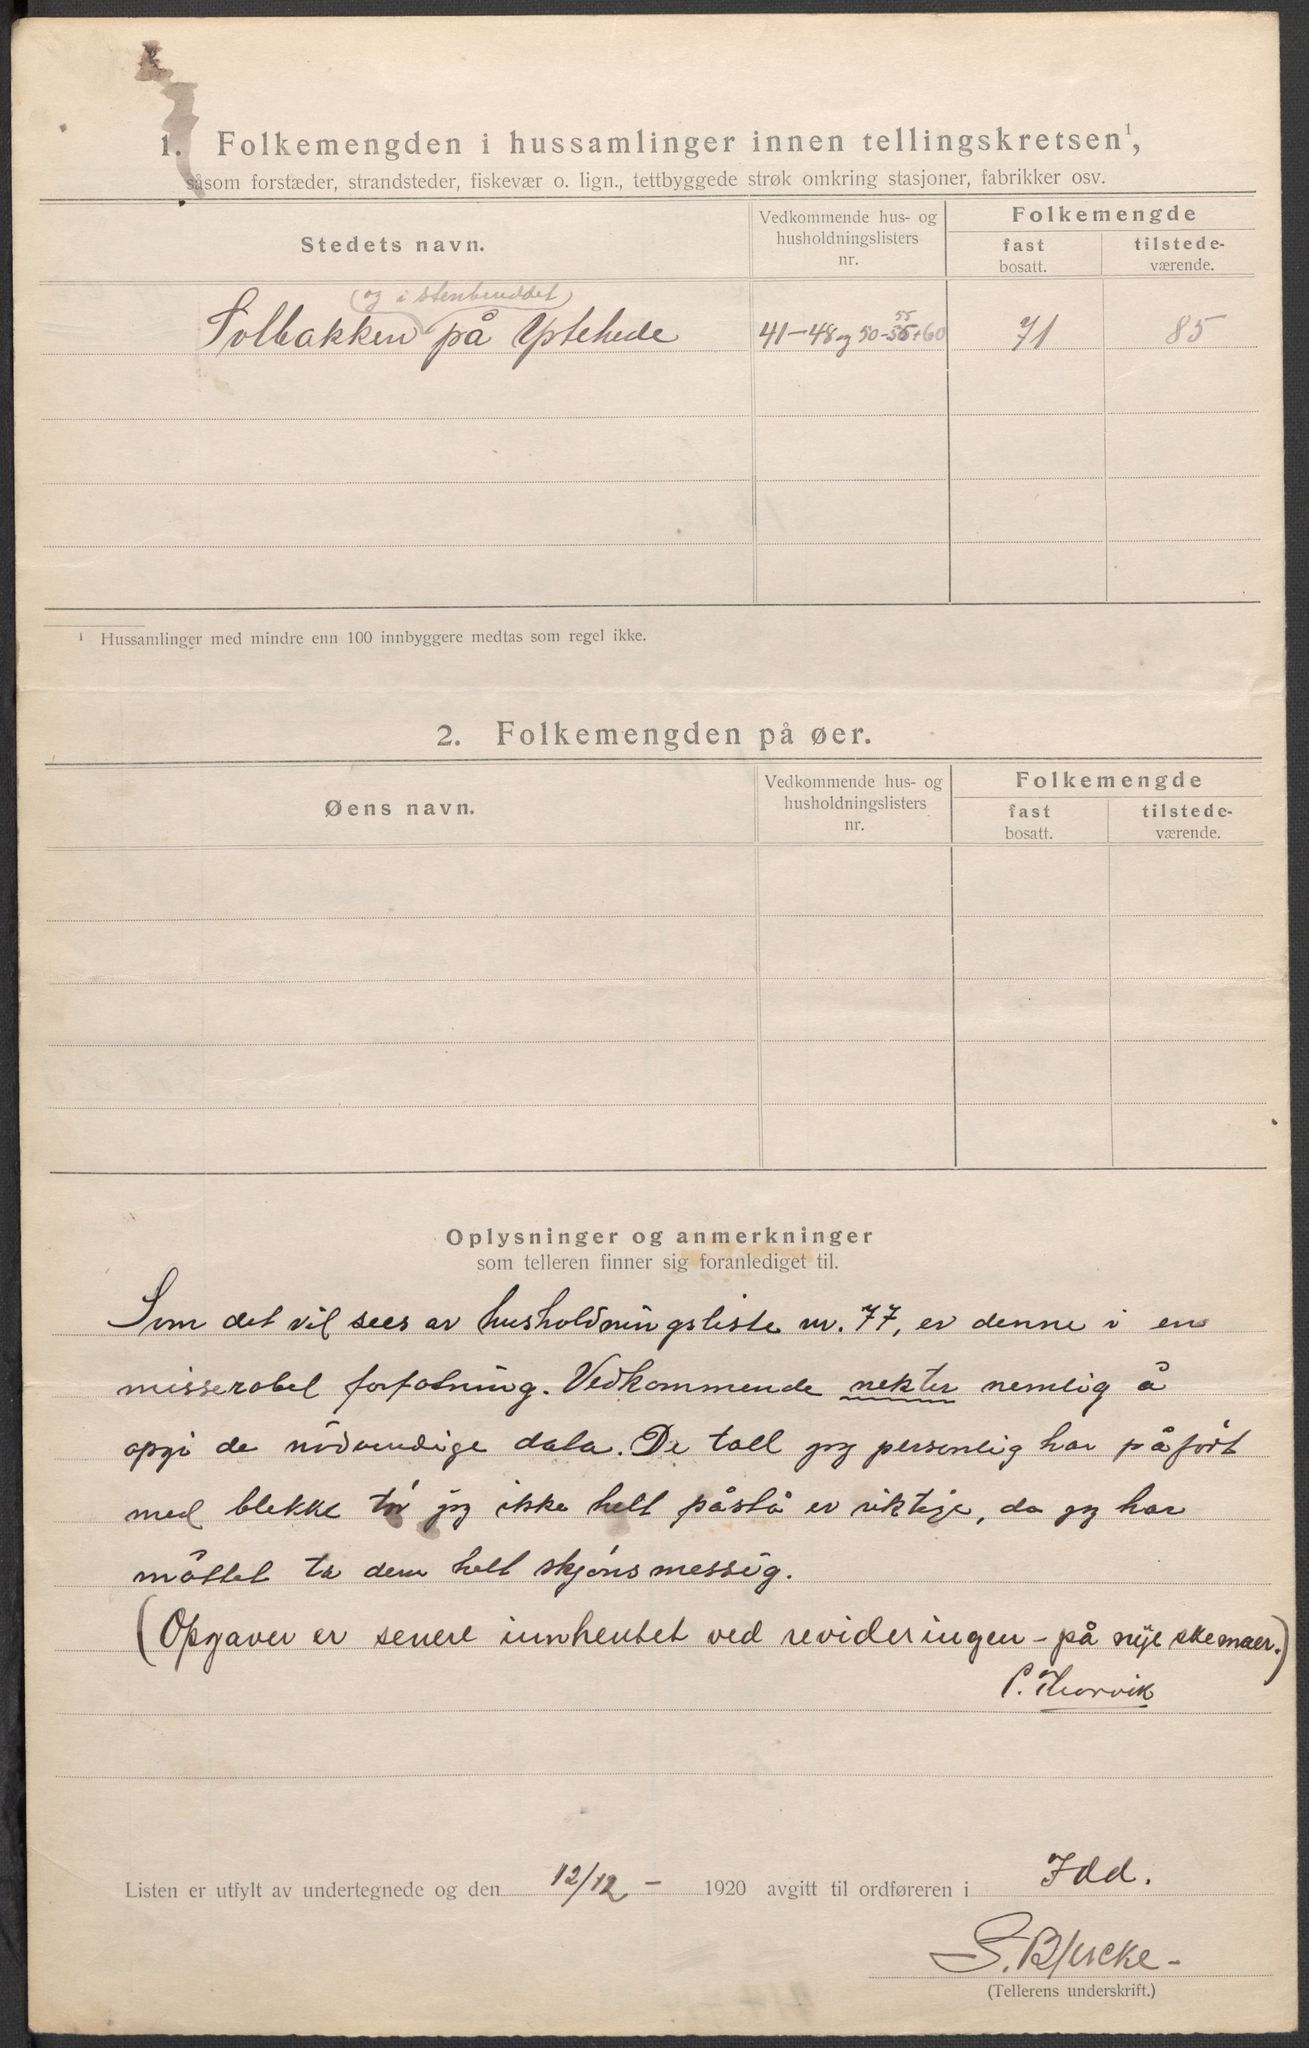 1. Folkemengden i hussamlinger innen tellingskretsen¹,
såsom forstæder, strandsteder, fiskevær o. lign., tettbyggede strøk omkring stasjoner, fabrikker osv.
Stedets navn.
Vedkommende hus- og
husholdningslisters
nr.
Folkemengde
fast
bosatt.
tilstede-
værende.
(og i stenbruddet)
Solbakken på Ystehede 41-48 og 50-55+60 71 85
¹ Hussamlinger med mindre enn 100 innbyggere medtas som regel ikke.
2. Folkemengden på øer.
Øens navn.
Vedkommende hus- og
husholdningslisters
nr.
Folkemengde
fast
bosatt.
tilstede-
værende.
Oplysninger og anmerkninger
som telleren finner sig foranlediget til.
Som det vil sees av husholdningsliste nr. 77, er denne i en
misserabel forfatning. Vedkommende nekter nemlig å
opgi de nödvendige data. De tall jeg personlig har påfört
med blekke tör jeg ikke helt påstå er riktige, da jeg har
måttet ta dem helt skjönsmessig.
(Opgaver er senere innhentet ved revideringen - på nye skemaer.)
P. Thorvik
Listen er utfylt av undertegnede og den 12/12 - 1920 avgitt til ordføreren i Idd.
S. Bjercke -
(Tellerens underskrift.)